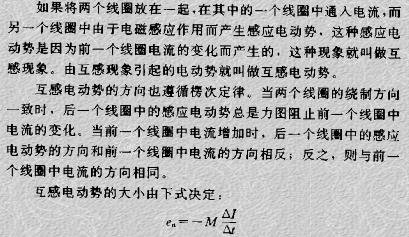 如果将两个线圈放在一起,在其中的一个线圈中通入电流,而
另一个线圈中由于电磁感应作用而产生感应电动势，这种感应电
动势是因为前一个线圈电流的变化而产生的，这种现象就叫做互
感现象。由互感现象引起的电动势就叫做互感电动势。
互感电动势的方向也遵循楞次定律。当两个线圈的绕制方向
一致时，后一个线圈中的感应电动势总是力图阻止前一个线圈中
电流的变化。当前一个线圈中电流增加时，后一个线圈中的感应
电动势的方向和前一个线圈中电流的方向相反；反之，则与前一
个线圈中电流的方向相同。
互感电动势的大小由下式决定：
eₙ=−M ΔI/Δt